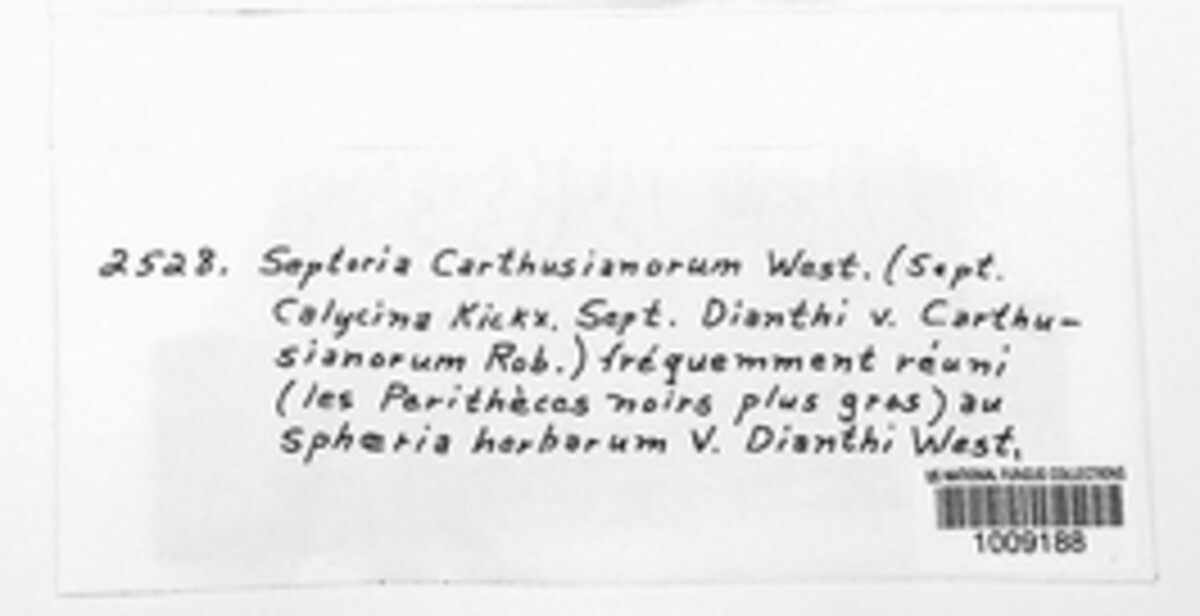 2528. Septoria Carthusianorum West. (Sept.
Calycina Kickx. Sept. Dianthi v. Carthu-
sianorum Rob.) fréquemment réuni
(les Perithèces noirs plus gros) au
Sphæria herbarum V. Dianthi West.
US NATIONAL FUNGUS COLLECTIONS
1009188